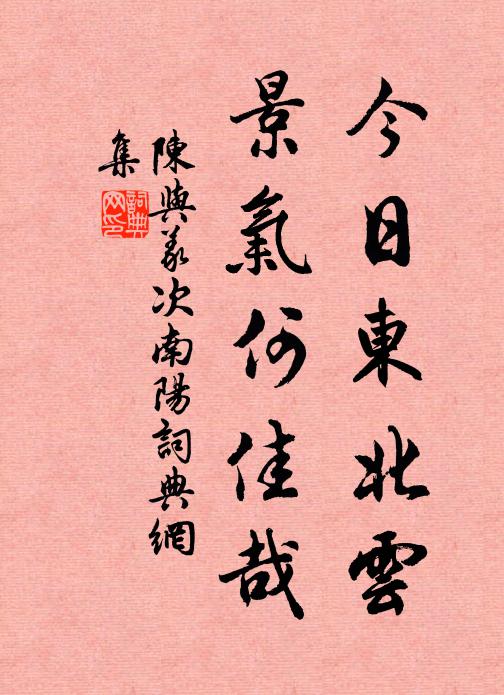 今日東北雲
景氣何佳哉
陳與義次南陽詞典網
集
詞典
网印